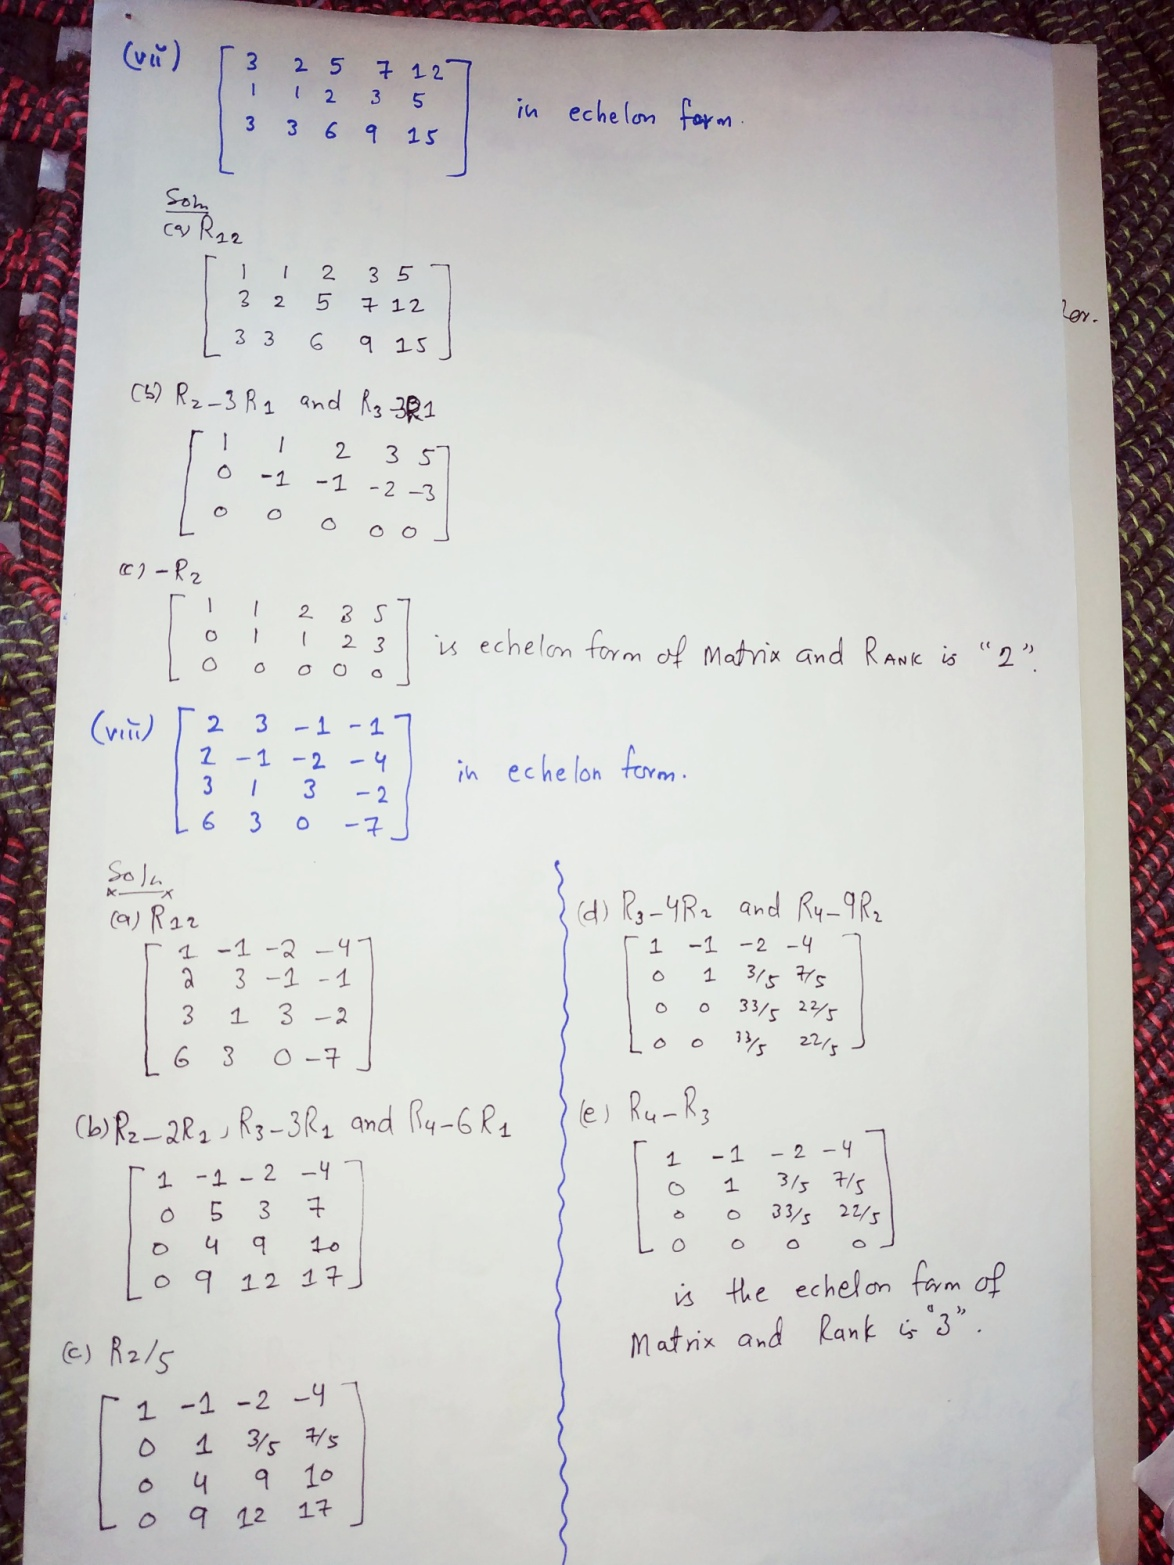 (vii) [ 3 2 5 7 12
1 1 2 3 5
3 3 6 9 15 ] in echelon form.
Soln
(a) R12
[ 1 1 2 3 5
3 2 5 7 12
3 3 6 9 15 ]
(b) R2-3R1 and R3-3R1
[ 1 1 2 3 5
0 -1 -1 -2 -3
0 0 0 0 0 ]
(c) -R2
[ 1 1 2 3 5
0 1 1 2 3
0 0 0 0 0 ] is echelon form of Matrix and RANK is "2".
(viii) [ 2 3 -1 -1
1 -1 -2 -4
3 1 3 -2
6 3 0 -7 ] in echelon form.
Soln
(a) R12
[ 1 -1 -2 -4
2 3 -1 -1
3 1 3 -2
6 3 0 -7 ]
(b) R2-2R1, R3-3R1 and R4-6R1
[ 1 -1 -2 -4
0 5 3 7
0 4 9 10
0 9 12 17 ]
(c) R2/5
[ 1 -1 -2 -4
0 1 3/5 7/5
0 4 9 10
0 9 12 17 ]
(d) R3-4R2 and R4-9R2
[ 1 -1 -2 -4
0 1 3/5 7/5
0 0 33/5 22/5
0 0 33/5 22/5 ]
(e) R4-R3
[ 1 -1 -2 -4
0 1 3/5 7/5
0 0 33/5 22/5
0 0 0 0 ]
is the echelon form of
Matrix and Rank is "3".